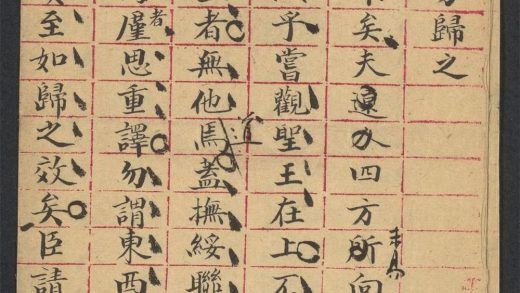 歸之
矣夫遠人四方所向
乎嘗觀聖王在上
者無他焉蓋道撫綏聯
者僅思重譯勿謂東西
至如歸之效矣臣請